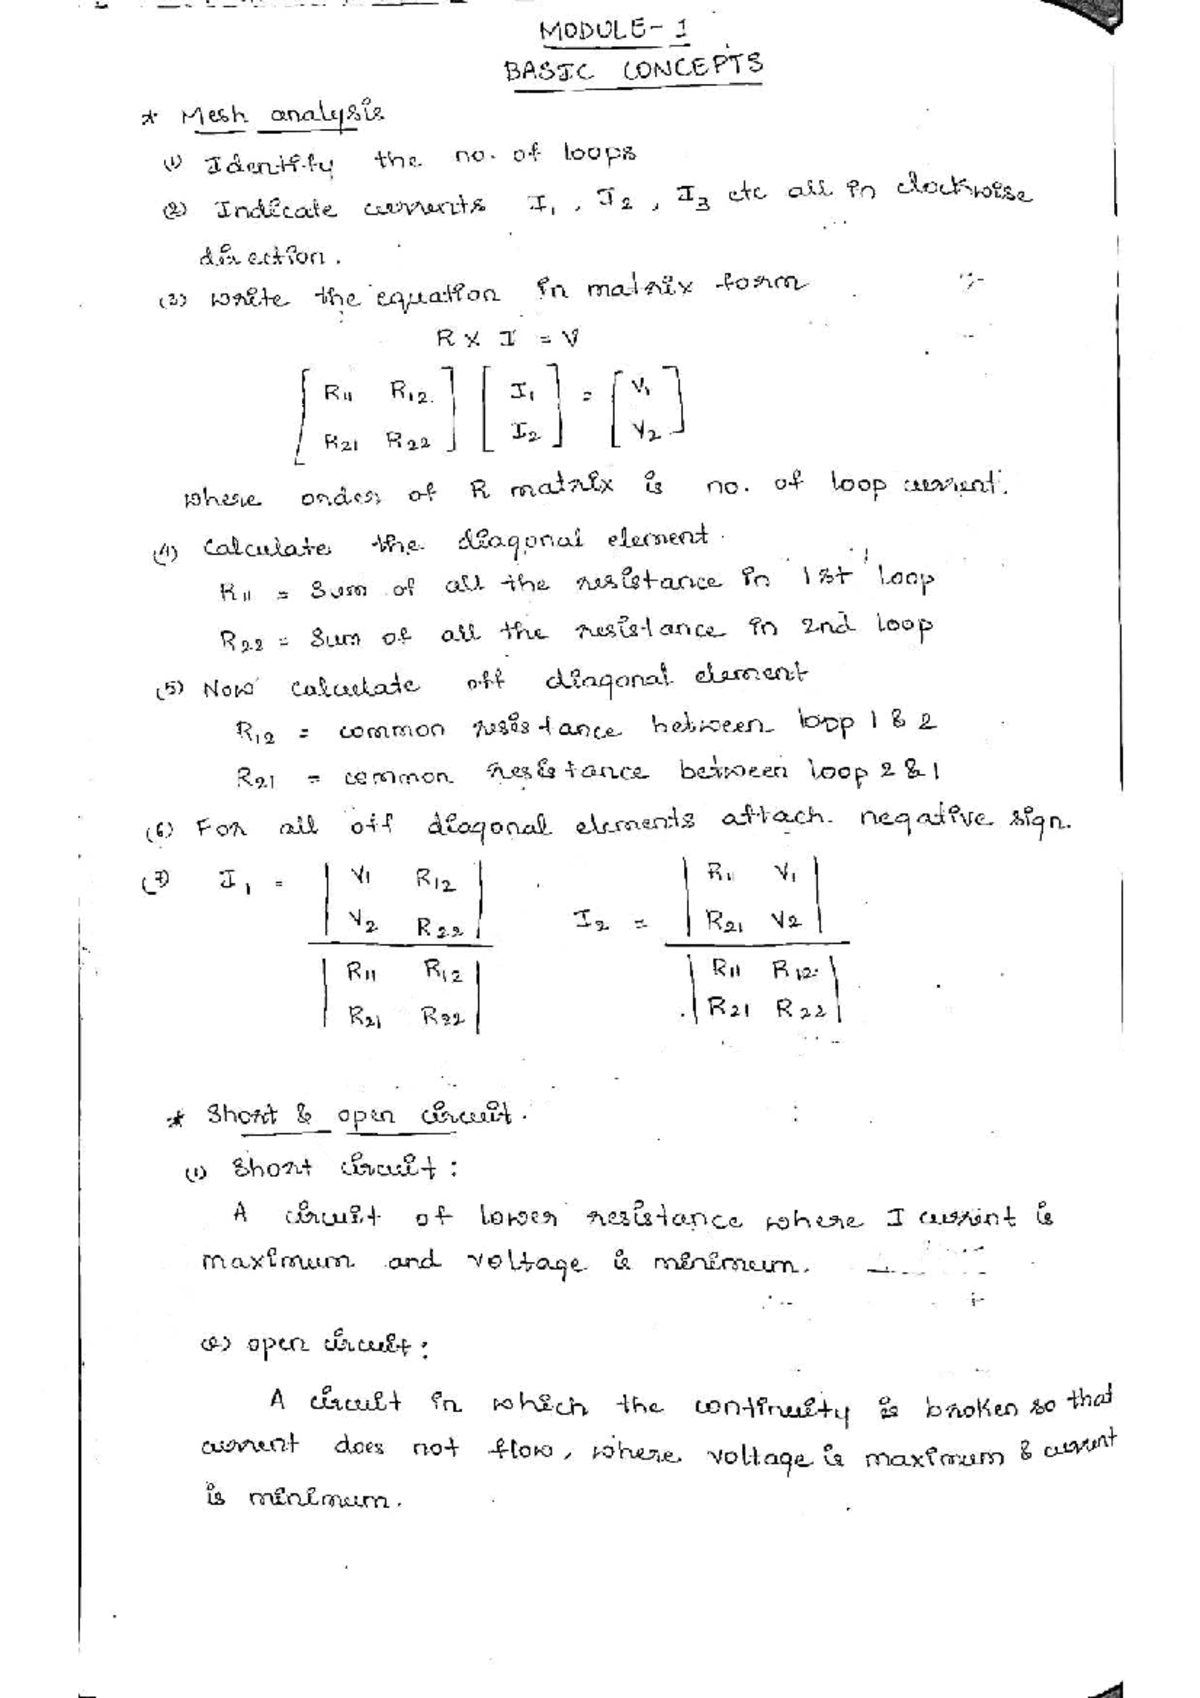 MODULE-1
BASIC CONCEPTS
* Mesh analysis
(1) Identify the no. of loops
(2) Indicate currents I1, I2, I3 etc all in clockwise
direction.
(3) Write the equation in matrix form
R x I = V
[R11 R12] [I1] = [V1]
[R21 R22] [I2] [V2]
where order of R matrix is no. of loop current.
(4) Calculate the diagonal element.
R11 = Sum of all the resistance in 1st loop
R22 = Sum of all the resistance in 2nd loop
(5) Now calculate off diagonal element
R12 = common resistance between loop 1 & 2
R21 = common resistance between loop 2 & 1
(6) For all off diagonal elements attach negative sign.
(7) I1 = |V1 R12| I2 = |R11 V1|
|V2 R22| |R21 V2|
|R11 R12| |R11 R12|
|R21 R22| |R21 R22|
* Short & open circuit.
(1) Short circuit:
A circuit of lower resistance where I current is
maximum and voltage is minimum.
(2) open circuit:
A circuit in which the continuity is broken so that
current does not flow, where voltage is maximum & current
is minimum.